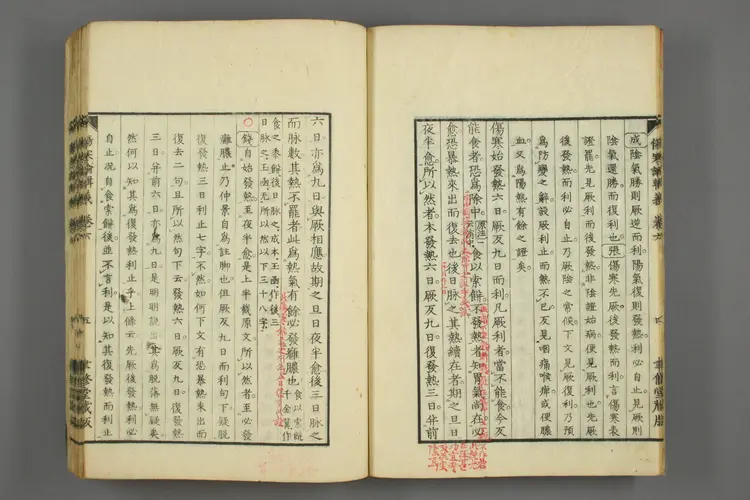 成陰氣勝則厥逆而利陽氣復則發熱利必自止見厥則
陰氣還勝而復利也張傷寒後發熱而利言傷寒表
證罷先見厥利而後發熱非陰證始病便見厥利也先厥
後發熱而利必自止乃厥陰之常候下文見厥復利乃預
為防變之辭設厥利止而熱不已反見咽痛喉痺或便膿
血又為陽熱有餘之證矣
傷寒始發熱六日厥反九日而利凡厥利者當不能食今反
能食者恐為除中食以索餅不發熱者知胃氣尚在必
愈恐暴熱來出而復去也後日脉之其熱續在者期之旦日
夜半愈所以然者本發熱六日厥反九日復發熱三日并前
六日亦為九日與厥相應故期之旦日夜半愈後三日脉之
而脉數其熱不罷者此為熱氣有餘必發癰膿也
錢自始發熱至夜半愈是上半截原文所以然者至必發
癰膿止乃仲景自為註脚也但厥反九日而利句下疑脱
復發熱三日利止七字不然如何下文有恐暴熱來出而
復去二句且所以然句下云發熱六日厥反九日復發熱
三日并前六日亦為九日是明明說出其為脱落無疑矣
然何以知其為復發熱利止乎上條云先厥後發熱利必
自止況自食索餅後並不言利是以知其復發熱而利止